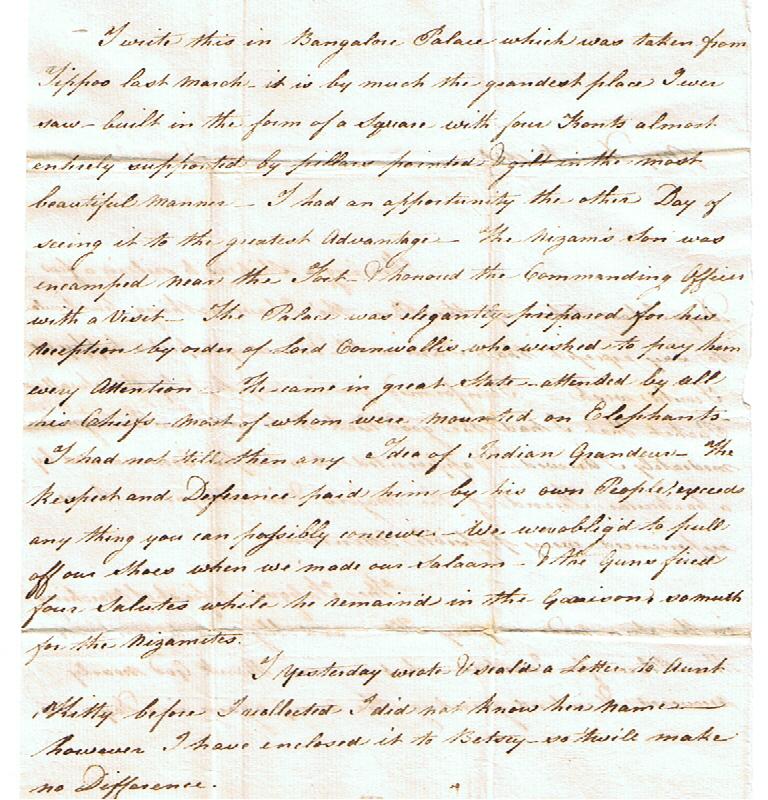 — I write this in Bangalore Palace which was taken from
Tippoo last March – it is by much the grandest place I ever
saw – built in the form of a Square with four Fronts almost
entirely supported by pillars painted & gilt in the most
beautiful Manner – I had an opportunity the other Day of
seeing it to the greatest Advantage – The Nizam's Son was
encamped near the Fort – & honored the Commanding Officer
with a Visit – The Palace was elegantly prepared for his
Reception by order of Lord Cornwallis who wished to pay him
every Attention – He came in great State – attended by all
his Chiefs – most of whom were mounted on Elephants –
I had not till then any Idea of Indian Grandeur – The
Respect and Deference paid him by his own People, exceeds
any thing you can possibly conceive – We were obligd to pull
off our Shoes when we made our Salaam – & the Guns fired
four Salutes while he remaind in the Garrison, so much
for the Nizamites.
I Yesterday wrote & seald a Letter to Aunt
Kitty before I recollected I did not know her Name –
however I have enclosed it to Betsey – so 'twill make
no Difference.